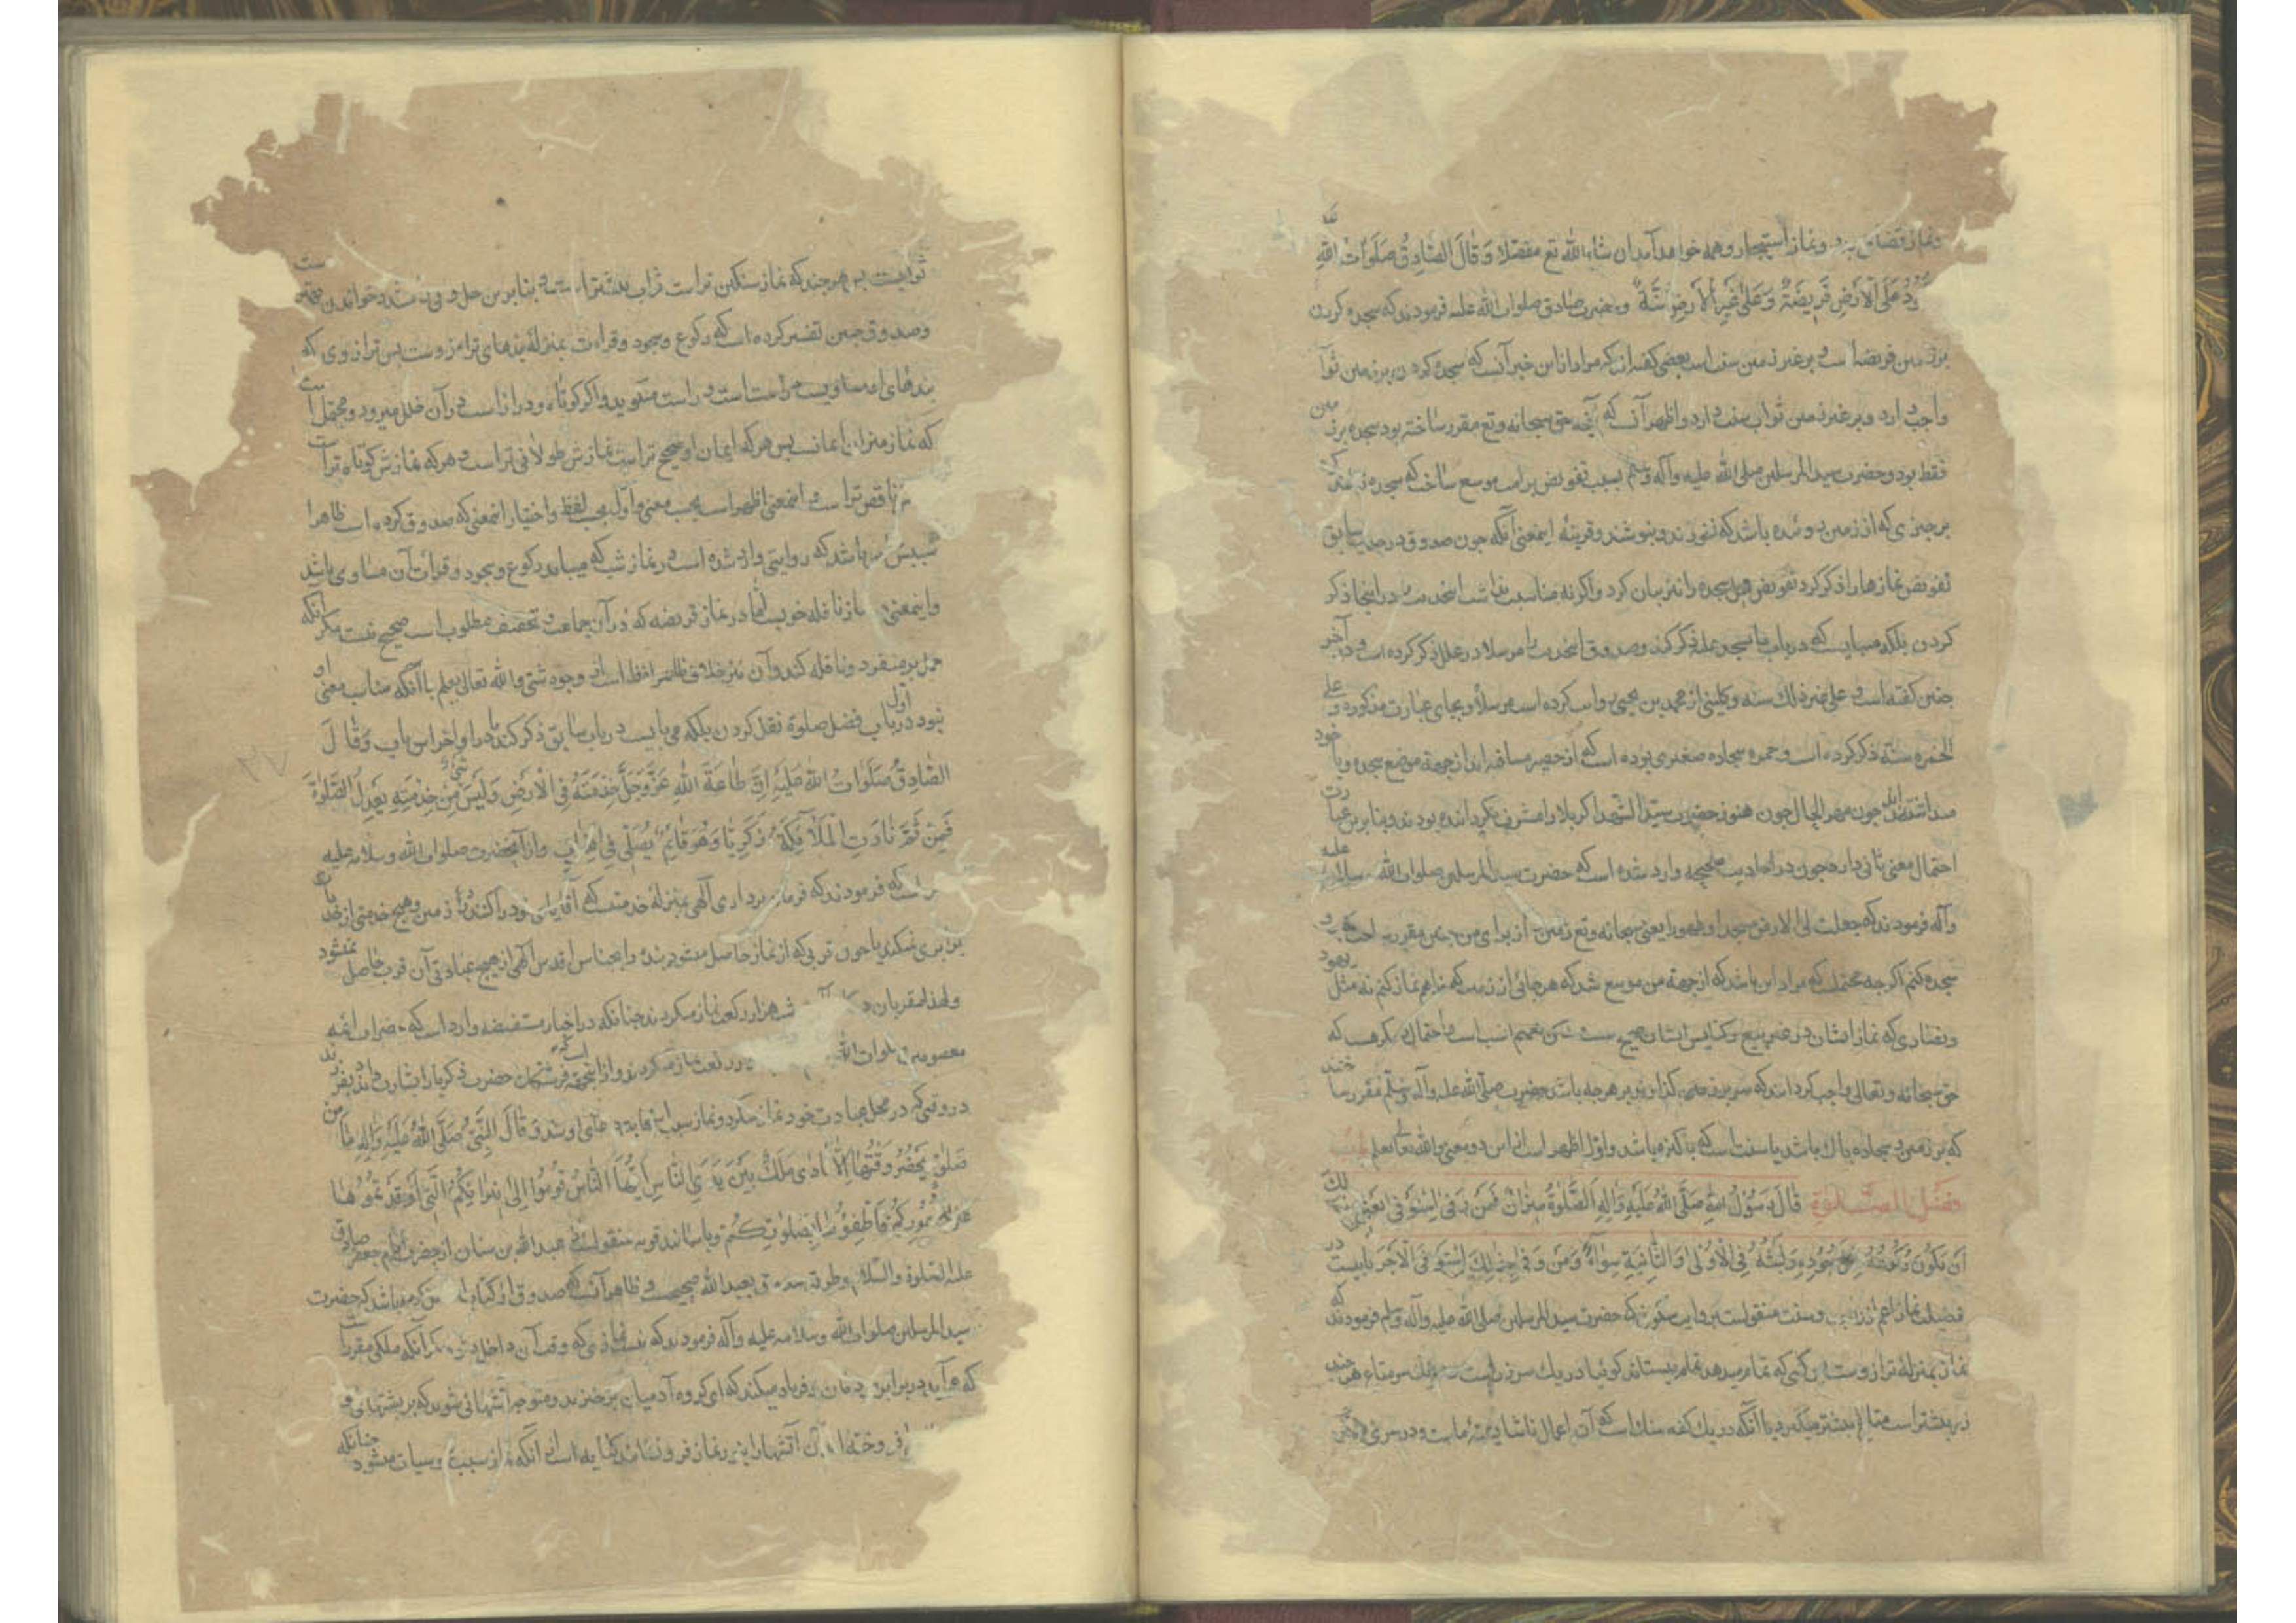 ونماز استیجار وهمه خواهد آمد ان شاء الله تع مفصلا وَقَالَ الصَّادِقُ صَلَوَاتُ اللهِ
عَلَى الْاَرْضِ فَرِيضَةٌ وَعَلَىٰ غَيْرِ الْاَرْضِ سُنَّةٌ وحضرت صادق صلوات الله علیه فرمودند که سجده کردن
بر زمین فریضه است و بر غیر زمین سنت است بعضی گفته‌اند که مراد از این خبر آنست که سجده کردن بر زمین ثواب
واجب دارد و بر غیر زمین ثواب سنت دارد و اظهر آنست که آنچه حق سبحانه وتع مقرر ساخته بود سجده بر زمین
فقط بود و حضرت سید المرسلین صلی الله علیه وآله وسلم بسبب تفویض بر امت موسع ساخت که سجده
بر چیزی که از زمین روئیده باشد که نخورند و نپوشند و قرینهٔ اینمعنی آنکه چون صدوق در حدیث سابق
تفویض نمازها را ذکر کرد تفویض سجده را نیز بیان کرد و اگر نه مناسبت نداشت این حدیث را در اینجا ذکر
کردن بلکه میبایست که در باب ما یسجد علیه ذکر کند و صدوق این حدیث را مرسلا در علل ذکر کرده است و در آخر
چنین گفته است و علی غیر ذلك سنه وکلینی از محمد بن یحیی روایت کرده است مرسلاً و بجای عبارت مذکوره وعلی
الخمره سنة ذکر کرده است و خمره سجاده صغیری بوده است که از حصیر میساخته‌اند از جهة موضع سجده و با خود
میداشته‌اند چون مهر الحال چون هنوز حضرت سید الشهدا کربلا را مشرف نگردانیده بودند و بنا برین عبارت
احتمال معنی ثانی دارد چون در احادیث صحیحه وارد شده است که حضرت سید المرسلین صلوات الله وسلامه علیه
وآله فرمودند که جعلت لی الارض مسجدا وطهورا یعنی حق سبحانه وتع زمین را از برای من چنین مقرر ساخت که برو
سجده کنم اگرچه محتملست که مراد این باشد که از جهة من موسع شد که هر جائی از زمین که خواهم نماز کنم نه مثل یهود
ونصاری که نماز ایشان در غیر بیع وکنایس ایشان صحیح نیست لیکن تعمیم انسب است و احتمال دیگر هست که
حق سبحانه وتعالی واجب گردانید که سر بر زمین گذارند بر هرچه باشد وحضرت صلی الله علیه وآله وسلم مقرر ساختند
که بر زمین و سجاده پاك باشد یا سنت است که پاکیزه باشد واول اظهر است از این دو معنی والله تعالی یعلم باب
فَضْلِ الصَّلٰوةِ قَالَ رَسُولُ اللهِ صَلَّى اللهُ عَلَيْهِ وَآلِهِ الصَّلٰوةُ مِيزَانٌ فَمَنْ وَفَىٰ اسْتَوْفَىٰ يَعْنِي بِذٰلِكَ
اَنْ تَكُونَ رُكُوعُهُ وَسُجُودُهُ وَلَبْثُهُ فِي الْاُولىٰ وَالثَّانِيَةِ سَوَاءً وَمَنْ وَفَىٰ بِذٰلِكَ اسْتَوْفَى الْاَجْرَ بابیست در
فضیلت نماز اعم از واجب وسنت منقولست بروایت سکونی که حضرت سید المرسلین صلی الله علیه وآله وسلم فرمودند که
نماز بمنزلهٔ ترازوست پس کسی که تمام میدهد تمام میستاند گوئیا در یك سر ترازوست سنك و سر متاع هر چند
زر بیشتر است متاع بیشتر میگیرد یا آنکه در یك کفه سنك است که آن اعمال ناشایستهٔ ماست و در سری
ثوابست پس هر چند که نماز سنگین تر است ثواب بیشتر است و بنا برین
وصدوق چنین تفسیر کرده است که رکوع وسجود وقرائت بمنزلهٔ بندهای ترازوست پس ترازوی که
بندهای او مساویست راست است و راست میگوید و اگر کوتاه و دراز است در آن خلل میرود ومحتمل است
که نماز میزان ایمانست پس هرکه ایمان او صحیح تر است نمازش طولانی تر است و هرکه نمازش کوتاه تر است
ناقص تر است و اینمعنی اظهر است بحسب معنی و اول بحسب لفظ و اختیار اینمعنی که صدوق کرده است ظاهرا
سببش این باشد که روایتی وارد شده است در نماز شب که میباید رکوع وسجود وقرائت آن مساوی باشد
واینمعنی در نماز نافله خوبست اما در نماز فریضه که در آن جماعت و تخفیف مطلوب است صحیح نیست مگر آنکه
حمل بر منفرد و نافله کند و آن نیز خلاف ظاهر لفظ است از وجوه شتی والله تعالی یعلم با آنکه مناسب معنی او
نبود در باب فضل صلوة نقل کردن بلکه می بایست در باب سابق ذکر کند یا در اول و آخر این باب وَقَالَ
الصَّادِقُ صَلَوَاتُ اللهِ عَلَيْهِ اِنَّ طَاعَةَ اللهِ عَزَّوَجَلَّ خِدْمَتُهُ فِي الْاَرْضِ وَلَيْسَ شَيْءٌ مِنْ خِدْمَتِهِ يَعْدِلُ الصَّلٰوةَ
فَمِنْ ثَمَّ نَادَتِ الْمَلَائِكَةُ زَكَرِيَّا وَهُوَ قَائِمٌ يُصَلِّي فِي الْمِحْرَابِ واز آنحضرت صلوات الله وسلامه علیه
است که فرمودند که فرمان برداری الهی بمنزلهٔ خدمتیست که آقایان خود را کنند در زمین وهیچ خدمتی از خدمات
برابری نمیکند با چون قربی که از نماز حاصل میشود بنده را بجناب اقدس الهی از هیچ عبادتی آن قرب حاصل نمیشود
ولهذا مقربان هزار رکعت نماز میکردند چنانکه در اخبار مستفیضه وارد است که حضرات ائمه
معصومین صلوات الله رکعت نماز میکردند و از اینجهة است که فرشتگان حضرت زکریا را بشارت دادند بفرزند
در وقتی که در محل عبادت خود نماز میکرد و نماز سبب استجابت دعای او شد وَقَالَ النَّبِيُّ صَلَّى اللهُ عَلَيْهِ وَآلِهِ مَا مِنْ
صَلٰوةٍ يَحْضُرُ وَقْتُهَا اِلَّا نَادَى مَلَكٌ بَيْنَ يَدَيِ النَّاسِ اَيُّهَا النَّاسُ قُومُوا اِلىٰ نِيرَانِكُمُ الَّتِي اَوْقَدْتُمُوهَا
عَلىٰ ظُهُورِكُمْ فَاَطْفِؤُهَا بِصَلوٰتِكُمْ وباسانید قویه منقولست از عبدالله بن سنان از حضرت امام جعفر صادق
علیه الصلوة والسلام وطریق صدوق بعبدالله صحیحست و ظاهر آنست که صدوق از کتاب او باشد که حضرت
سید المرسلین صلوات الله وسلامه علیه وآله فرمودند که نیست نمازی که وقت آن داخل شود مگر آنکه ملکی مقررست
که می‌آید در برابر مردمان و فریاد میکند که ای گروه آدمیان برخیزید و متوجه آتشهائی شوید که بر پشتهای
فروخته‌اید پس آن آتشها را بنماز فرو نشانید کنایه است از آنکه نماز سبب سیئات میشود چنانکه